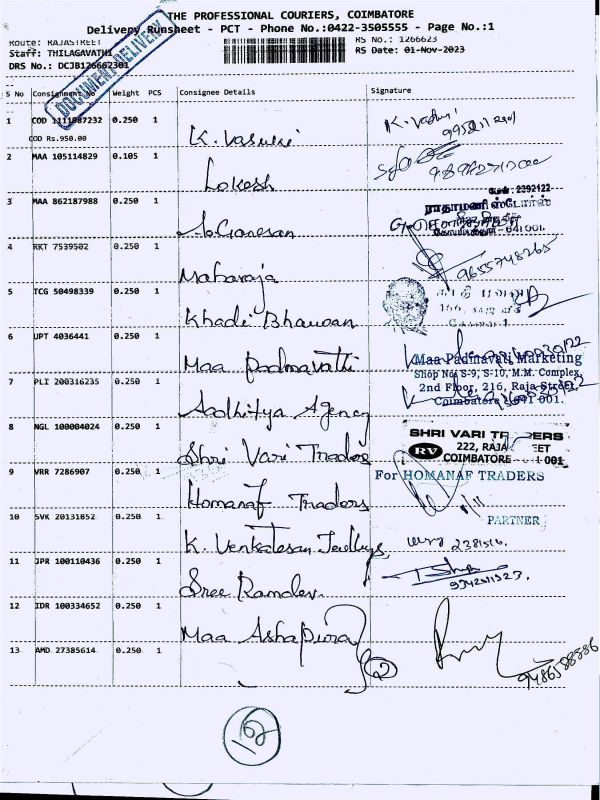 THE PROFESSIONAL COURIERS, COIMBATORE
Delivery Runsheet - PCT - Phone No.:0422-3505555 - Page No.:1
Route: RAJASTREET
RS No.: 1266623
Staff: THILAGAVATHI
RS Date: 01-Nov-2023
DRS No.: DCJB126662301
DOCUMENT DELIVERY
S No Consignment No Weight PCS Consignee Details Signature
1 COD 1111087232 0.250 1
COD Rs.950.00
K. Vasuki
2 MAA 105114829 0.105 1
Lokesh
3 MAA 862187988 0.250 1
2392122
ராதாமணி ஸ்டோர்ஸ்
641 001.
Ganesan
4 RKT 7539502 0.250 1
9655748265
Maharaja
5 TCG 50498339 0.250 1
Khadi Bhawan
6 UPT 4036441 0.250 1
Maa Padmavathi
Maa Padmavati Marketing
Shop No. S-9, S-10, M.M. Complex
2nd Floor, 216, Raja Street
Coimbatore - 641 001.
7 PLI 200316235 0.250 1
Aadhitya Agency
8 NGL 100004024 0.250 1
SHRI VARI TRADERS
RV
222, RAJA STREET
COIMBATORE - 641 001
Shri Vari Traders
9 VRR 7286907 0.250 1
For HOMANAF TRADERS
Homanaf Traders
PARTNER
10 SVK 20131852 0.250 1
K. Venkatesan
11 JPR 100110436 0.250 1
Sree Ramdev
12 IDR 100334652 0.250 1
Maa Ashapura
13 AMD 27385614 0.250 1
9486588886